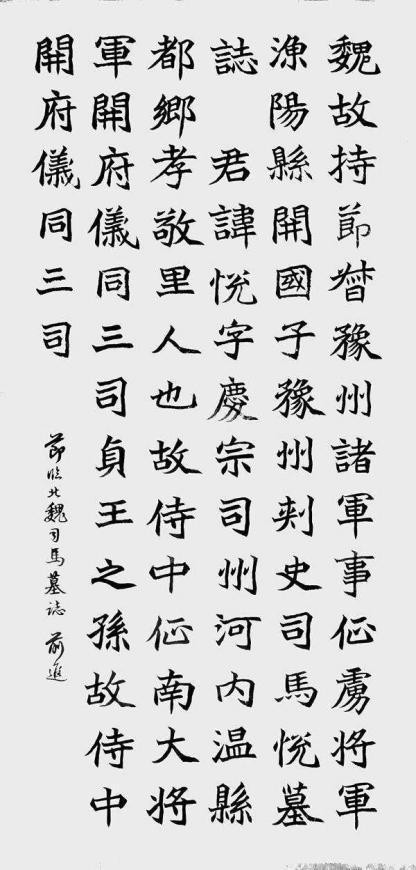 魏故持節督豫州諸軍事征虜将軍
漁陽縣開國子豫州刾史司馬悅墓
誌 君諱悅字慶宗司州河内温縣
都鄉孝敬里人也故侍中征南大将
軍開府儀同三司貞王之孫故侍中
開府儀同三司
節临北魏司馬墓誌 前進